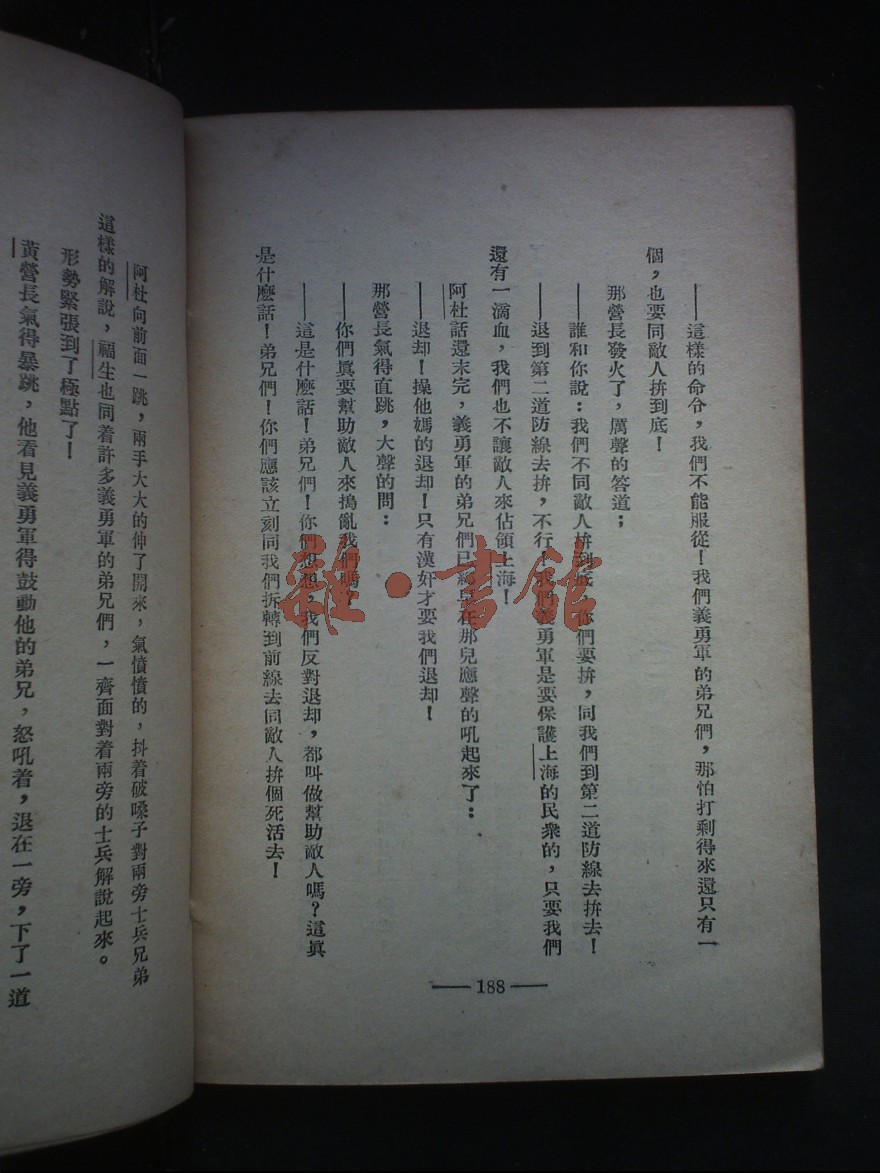 ——這樣的命令，我們不能服從！我們義勇軍的弟兄們，那怕打剩得來還只有一
個，也要同敵人拚到底！
那營長發火了，厲聲的答道；
——誰和你說：我們不同敵人拚到底，你們要拚，同我們到第二道防線去拚去！
——退到第二道防線去拚，不行！我們義勇軍是要保護上海的民衆的，只要我們
還有一滴血，我們也不讓敵人來佔領上海！
阿杜話還未完，義勇軍的弟兄們已經早在那兒應聲的吼起來了：
——退却！操他媽的退却！只有漢奸才要我們退却！
那營長氣得直跳，大聲的問：
——你們眞要幫助敵人來搗亂我們嗎！
——這是什麽話！弟兄們！你們想想，我們反對退却，都叫做幫助敵人嗎？這眞
是什麽話！弟兄們！你們應該立刻同我們拆轉到前線去同敵人拚個死活去！
——188——
阿杜向前面一跳，兩手大大的伸了開來，氣憤憤的，抖着破嗓子對兩旁士兵兄弟
這樣的解說，福生也同着許多義勇軍的弟兄們，一齊面對着兩旁的士兵解說起來。
形勢緊張到了極點了！
黃營長氣得暴跳，他看見義勇軍得鼓動他的弟兄，怒吼着，退在一旁，下了一道
雜·書館